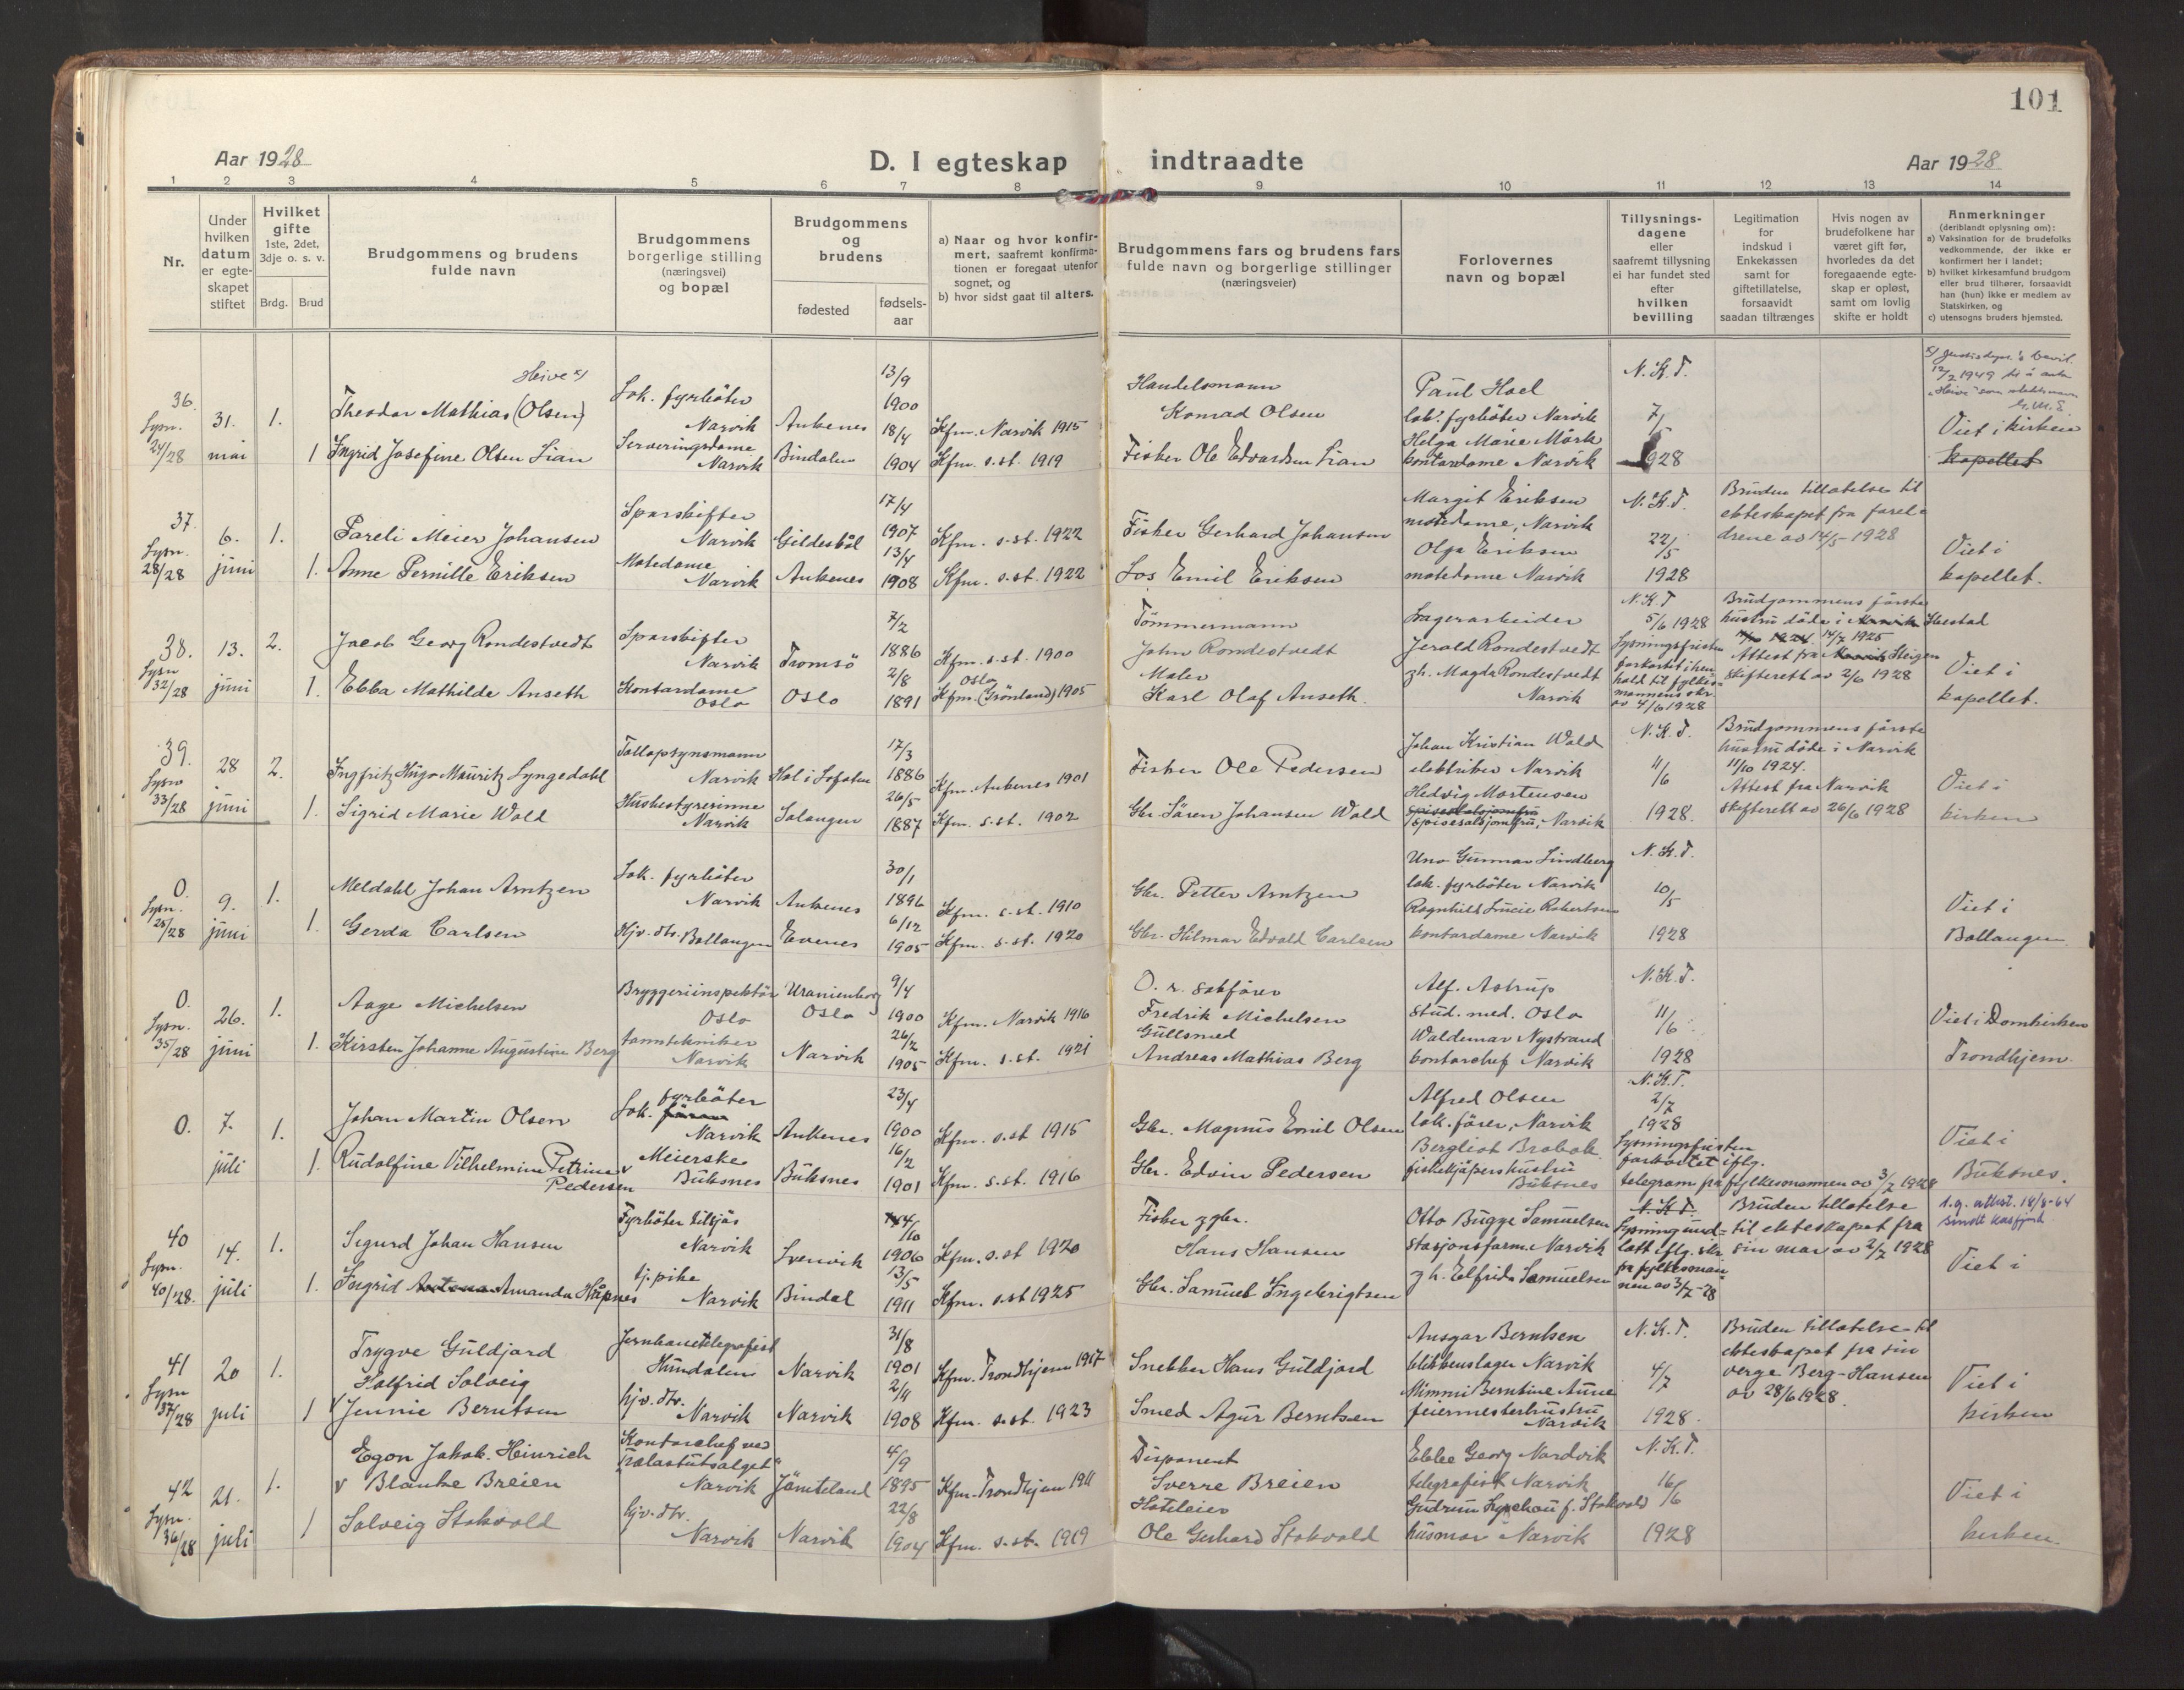 101
Aar 1928
D. I egteskap indtraadte
Aar 1928
1 2 3 4 5 6 7 8 9 10 11 12 13 14
Nr.
Under
hvilken
datum
er egte-
skapet
stiftet
Hvilket
gifte
1ste, 2det,
3dje o. s. v.
Brdg. Brud
Brudgommens og brudens
fulde navn
Brudgommens
borgerlige stilling
(næringsvei)
og bopæl
Brudgommens
og
brudens
fødested
fødsels-
aar
a) Naar og hvor konfir-
mert, saafremt konfirma-
tionen er foregaat utenfor
sognet, og
b) hvor sidst gaat til alters.
Brudgommens fars og brudens fars
fulde navn og borgerlige stillinger
(næringsveier)
Forlovernes
navn og bopæl
Tillysnings-
dagene
eller
saafremt tillysning
ei har fundet sted
efter
hvilken
bevilling
Legitimation
for
indskud i
Enkekassen
samt for
giftetillatelse,
forsaavidt
saadan tiltrænges
Hvis nogen av
brudefolkene har
været gift før,
hvorledes da det
foregaaende egte-
skap er opløst,
samt om lovlig
skifte er holdt
Anmerkninger
(deriblandt oplysning om):
a) Vaksination for de brudefolks
vedkommende, der ikke er
konfirmert her i landet;
b) hvilket kirkesamfund brudgom
eller brud tilhører, forsaavidt
han (hun) ikke er medlem av
Statskirken, og
c) utensogns bruders hjemsted.
36. Lysn. 24/28
31. mai
1.
1
Heive x)
Theodor Mathias (Olsen)
Ingrid Josefine Olsen Lian
Lok. fyrbøter
Narvik
Serveringsdame
Narvik
Ankenes
Bindalen
13/9
1900
18/4
1904
Kfm. Narvik 1915
Kfm. s.st. 1919
Handelsmann
Konrad Olsen
Fisker Ole Edvardsen Lian
Paul Hoel
lok. fyrbøter Narvik
Helga Marie Mørk
kontordame Narvik
N.K.T.
7/
1928
x) Justisdept.'s bevil.
12/2 1949 til å anta
"Heive" som slektsnavn
Viet i kirken
kapellet
37. Lysn. 28/28
6. juni
1.
1.
Pareli Meier Johansen
Anne Pernille Eriksen
Sporskifter
Narvik
Motedame
Narvik
Gildeskål
Ankenes
17/4
1907
13/4
1908
Kfm. s.st. 1922
Kfm. s.st. 1922
Fisker Gerhard Johansen
Los Emil Eriksen
Margit Eriksen
motedame, Narvik
Olga Eriksen
motedame Narvik
N.K.T.
22/5
1928
Bruden tillatelse til
ekteskapet fra forel-
drene av 14/5-1928
Viet i
kapellet.
38. Lysn 32/28
13. juni
2.
1.
Jacob Georg Rondestvedt
Ebba Mathilde Anseth
Sporskifter
Narvik
Kontordame
Oslo
Tromsø
Oslo
7/2
1886
2/8
1891
Kfm. s.st. 1900
Oslo
Kfm. (Grønland) 1905
Tømmermann
John Rondestvedt
Maler
Karl Olaf Anseth.
Lagerarbeider
Jerald Rondestvedt
gh. Magda Rondestvedt
Narvik
N.K.T
5/6 1928
Lysningsfristen
forkortet i hen-
hold til fylkes-
mannens skr.
av 4/6 1928
Brudgommens første
hustru døde i Narvik
1924. 14/2 1925
Attest fra Narvik Steigen
skifterett av 2/6 1928
Viet i
kapellet.
39. Lysn 33/28
28 juni
2.
1.
Ingfritz Hugo Mauritz Lyngedahl
Sigrid Marie Wold
Tollopsynsmann
Narvik
Husbestyrerinne
Narvik
Hol i Lofoten
Salangen
17/3
1886
26/5
1887
Kfm. Ankenes 1901
Kfm. s.st. 1902
Fisker Ole Pedersen
Gbr. Søren Johansen Wold
Johan Kristian Wold
elektriker Narvik
Hedvig Mortensen
spisesalsjomfru, Narvik
N.K.T.
11/6
1928.
Brudgommens første
hustru døde i Narvik
11/10 1924.
Attest fra Narvik
skifterett av 26/6 1928
Viet i
kirken
0. Lysn. 25/28
9. juni
1.
1.
Meldahl Johan Arntzen
Gerda Carlsen
Lok. fyrbøter
Narvik
Hjv. dtr. Ballangen
Ankenes
Evenes
30/1
1896
6/12
1905
Kfm. s.st. 1910
Kfm. s.st. 1920
Gbr. Petter Arntzen
Gbr. Hilmar Edvald Carlsen
Uno Gunnar Lindberg
lok. fyrbøter Narvik
Ragnhild Lucie Robertsen
kontordame Narvik
N.K.T.
10/5
1928
Viet i
Ballangen
0. Lysn. 35/28
26. juni
1.
1.
Aage Michelsen
Kirsten Johanne Augustine Berg
Bryggeriinspektør
Oslo
tanntekniker
Narvik
Uranienborg
Oslo
Narvik
9/4
1900
26/2
1905
Kfm. Narvik 1916
Kfm. s.st. 1921
O. r. sakfører
Fredrik Michelsen
Gullsmed
Andreas Mathias Berg
Alf. Astrup
stud. med. Oslo
Waldemar Nystrand
kontorchef Narvik
N.K.T.
11/6
1928
Viet i Domkirken
Trondhjem.
0.
7. juli
1.
1.
Johan Martin Olsen
Rudolfine Vilhelmine Petrine
Pedersen
Lok. fyrbøter
Narvik
Meierske
Buksnes
Ankenes
Buksnes
23/4
1900
16/2
1901
Kfm. s.st 1915
Kfm. s.st. 1916
Gbr. Magnus Emil Olsen
Gbr. Edvin Pedersen
Alfred Olsen
lok. fører, Narvik
Bergliot Brobak
fiskekjøpers hustru
Buksnes
N.K.T.
2/7
1928
Lysningsfristen
forkortet iflg.
telegram fra fylkesmannen av 3/7 1928
Viet i
Buksnes.
40 Lysn. 40/28.
14. juli
1.
1.
Sigurd Johan Hansen
Ingrid Antona Amanda Håpnes
Fyrbøter tilsjøs
Narvik
tj. pike
Narvik
Svenvik
Bindal
14/10
1906
13/5
1911
Kfm. s.st 1920
Kfm. s.st 1925
Fisker & gbr.
Hans Hansen
Gbr. Samuel Ingebrigtsen
Otto Bugge Samuelsen
stasjonsform. Narvik
g h. Elfrida Samuelsen
N.K.T.
Lysning und-
latt iflg. skr
fra fylkesman-
nen av 3/7-28
Bruden tillatelse
til ekteskapet fra
sin mor av 2/7 1928
1.g. attest. 18/8-64
Viet i
41 Lysn 37/28
20 juli
1.
1
Trygve Guldjord
Halfrid Solveig
Jennie Berntsen
Jernbanetelegrafist
Hundalen
hjv. dtr.
Narvik
Narvik
Narvik
31/8
1901
2/11
1908
Kfm. Trondhjem 1917
Kfm. s.st. 1923
Snekker Hans Guldjord
Smed Agur Berntsen
Ansgar Berntsen
blikkenslager Narvik
Mimmi Berntine Aune
feiermesterhustru
Narvik
N.K.T.
4/7
1928.
Bruden tillatelse til
ekteskapet fra sin
verge Berg-Hansen
av 28/6 1928.
Viet i
kirken
42 Lysn. 36/28
21. juli
1.
1
Egon Jakob Heinrich
Blanke Breien
Solveig Stokvold
Kontorchef ved
"Polastutsalget"
Narvik
hjv. dtr.
Narvik
Jämteland
Narvik
4/9
1895
22/8
1904
Kfm. Trondhjem 1911
Kfm. s.st. 1919
Disponent
Sverre Breien
Hoteleier
Ole Gerhard Stokvold
Ebbe Georg Nordvik
telegrafist Narvik
Gudrun f. Stokvold
husmor Narvik
N.K.T.
16/6
1928
Viet i
kirken.